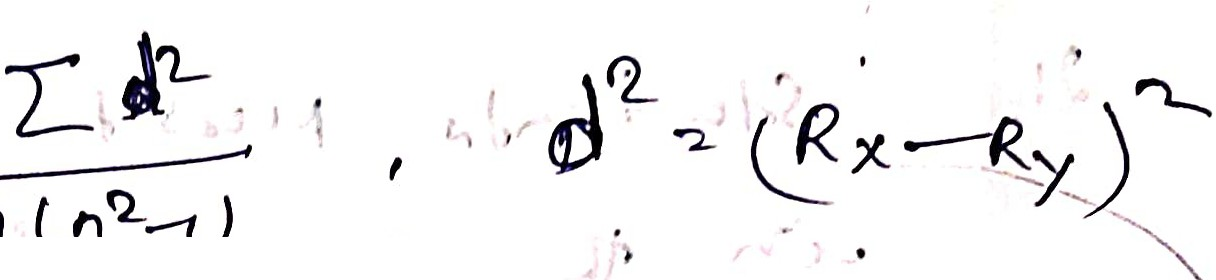 Σ d²
(n²-1) , d² = (Rx - Ry)²